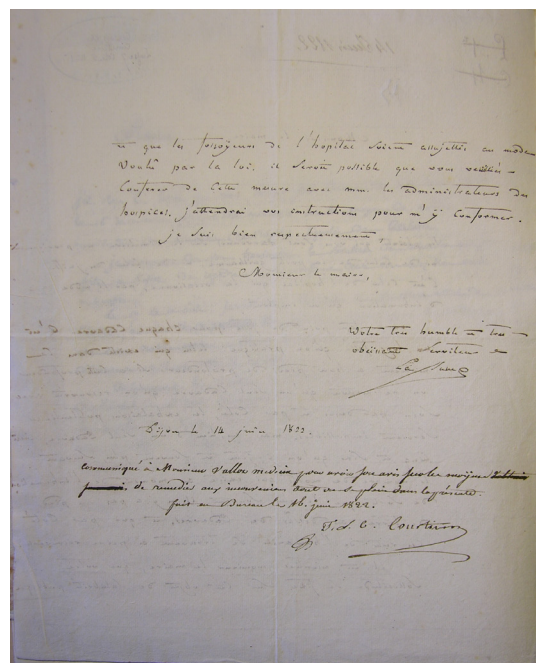 et que les fossoyeurs de l'hopital soient assujettis au mode
voulû par la loi. il seroit possible que vous vouliés
conferer de cette mesure avec mm. les administrateurs des
hospices. j'attendrai vos instructions pour m'y conformer.
je suis bien respectueusement,
Monsieur le maire,
Votre très humble et très
obéissant Serviteur
Dijon le 14 juin 1822.
communiqué à Monsieur Vallot medecin pour avoir son avis sur les moyens
de remedier aux inconveniens dont on se plain dans la présente.
fait au Bureau le 16. juin 1822.